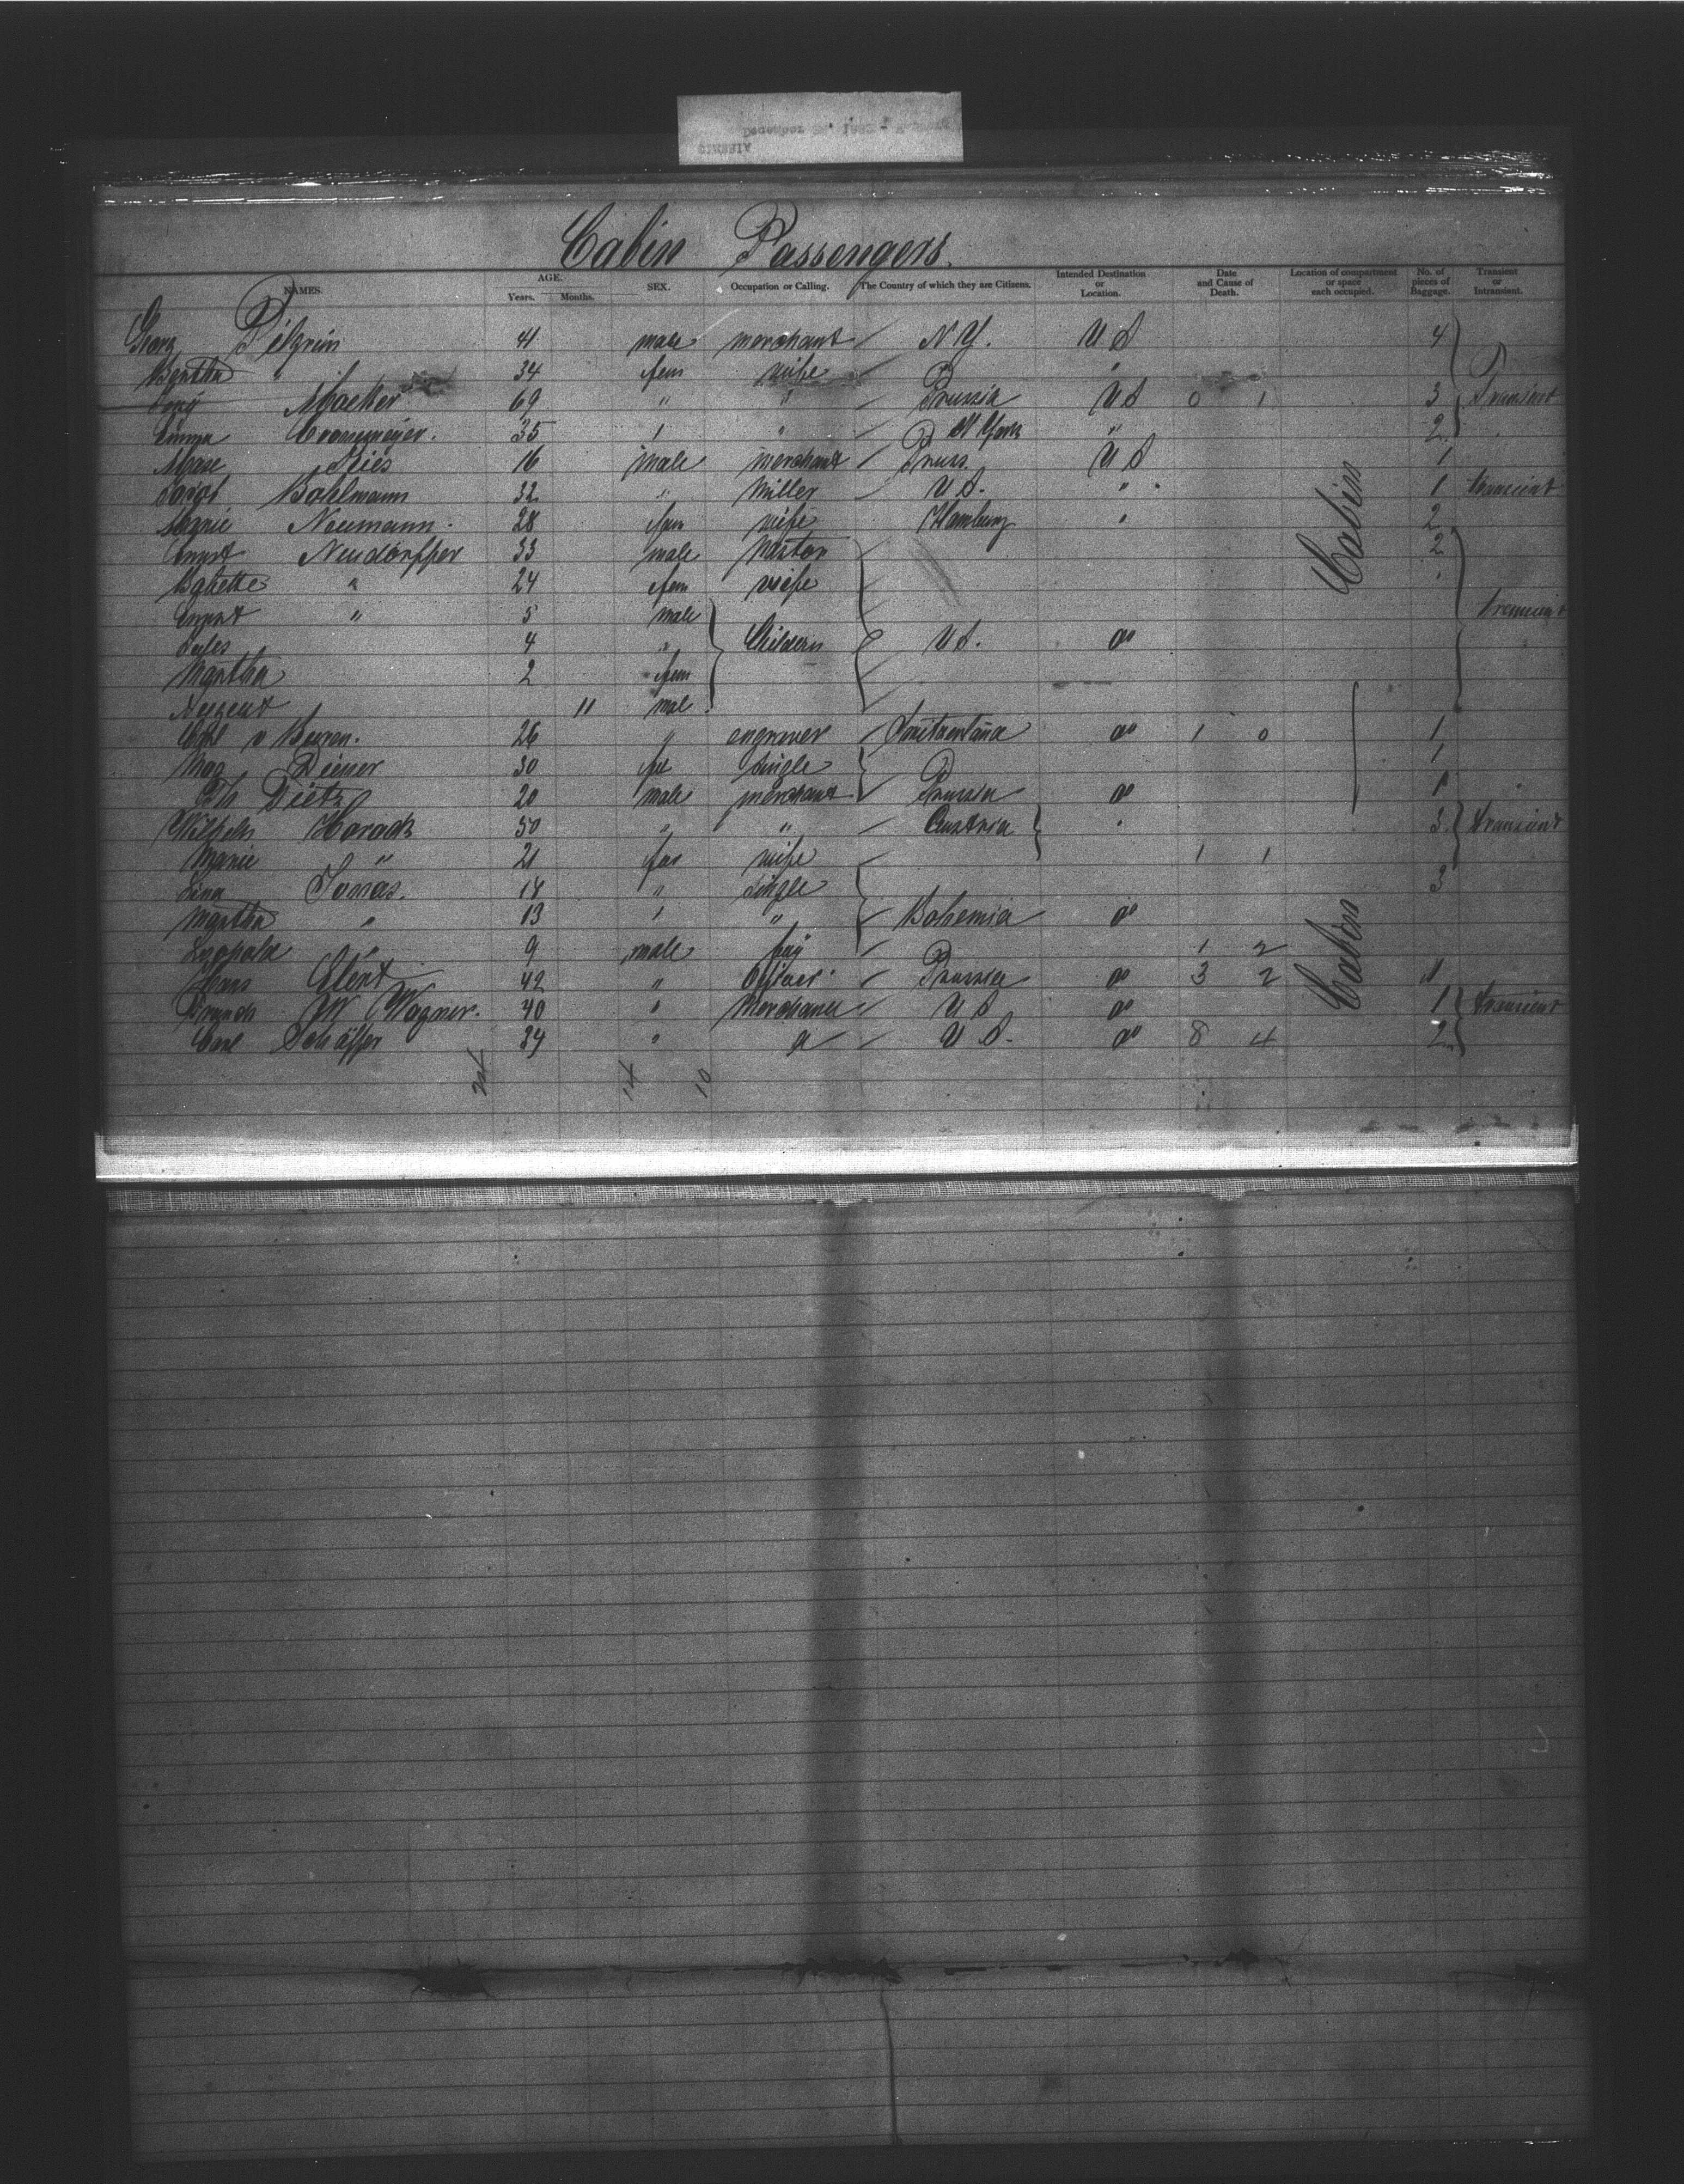 Cabin Passengers.
NAMES. AGE. Years. Months. SEX. Occupation or Calling. The Country of which they are Citizens. Intended Destination or Location. Date and Cause of Death. Location of compartment or space each occupied. No. of pieces of Baggage. Transient or Intransient.
Georg Pilgrim 41 male merchant N Y. U S 4
Bertha " 34 fem wife "
69 " " Prussia U S 0 1 3 Transient
Emma 35 " " N York " 2
16 male merchant Pruss. U S 1
Bohlmann 32 " Miller U S. " 1 transient
Marie Neumann. 28 fem wife Hamburg " 2
Ernst Neudörffer 33 male 2
Babette " 24 fem wife "
Ernst " 5 male transient
4 " Children U S. do
Martha 2 fem
11 mal
v Buren. 26 " engraver do 1 0 1
Diener 30 fe single 1
Dietz 20 male merchant Prussia do 1
Wilhelm Horack 50 " " Austria " 3 transient
Marie " 21 fem wife 1 1
Lina Jonas. 14 " single 3
Martha " 13 " " Bohemia do
Leopold " 9 male boy 1 2
Hans 42 " Prussia do 3 2 1
W Wagner. 40 " Merchant U S do 1 transient
Carl Schäffer 34 " U S. do 8 4 2
Cabin
Cabin
14 10